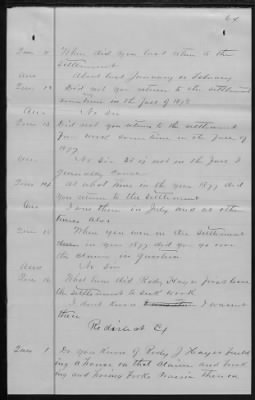 64
When did you last return to the
settlement
Ans About last January or February
Did not you return to the settlement
sometime in the fall of 1878
Ans No Sir
Did not you return to the settlement
for work some time in the fall of
1877
Ans No Sir It is not in the fall I
generally come
At what time in the year 1877 did
you return to the settlement
Ans I was there in July and at other
times also
When you were in the settlement
in year 1877 did you go over
the claim in question
Ans No Sir
What time did Rody Hayes leave
the settlement to seek work
I don't know I wasn't
there
Redirect
Ques 1 Do you know of Rody J Hayes build
ing a house on that claim and
ing and having